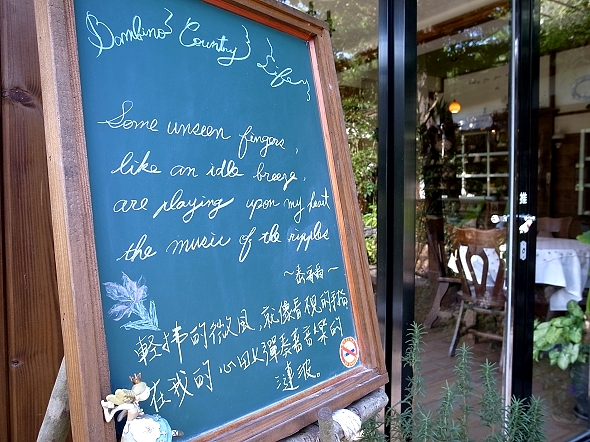 Bambino Country Life
Some unseen fingers,
like an idle breeze,
are playing upon my heart
the music of the ripples
~泰戈爾~
輕拂的微風,就像看不見的手指
在我的心田上彈奏著音樂的
漣漪。
推